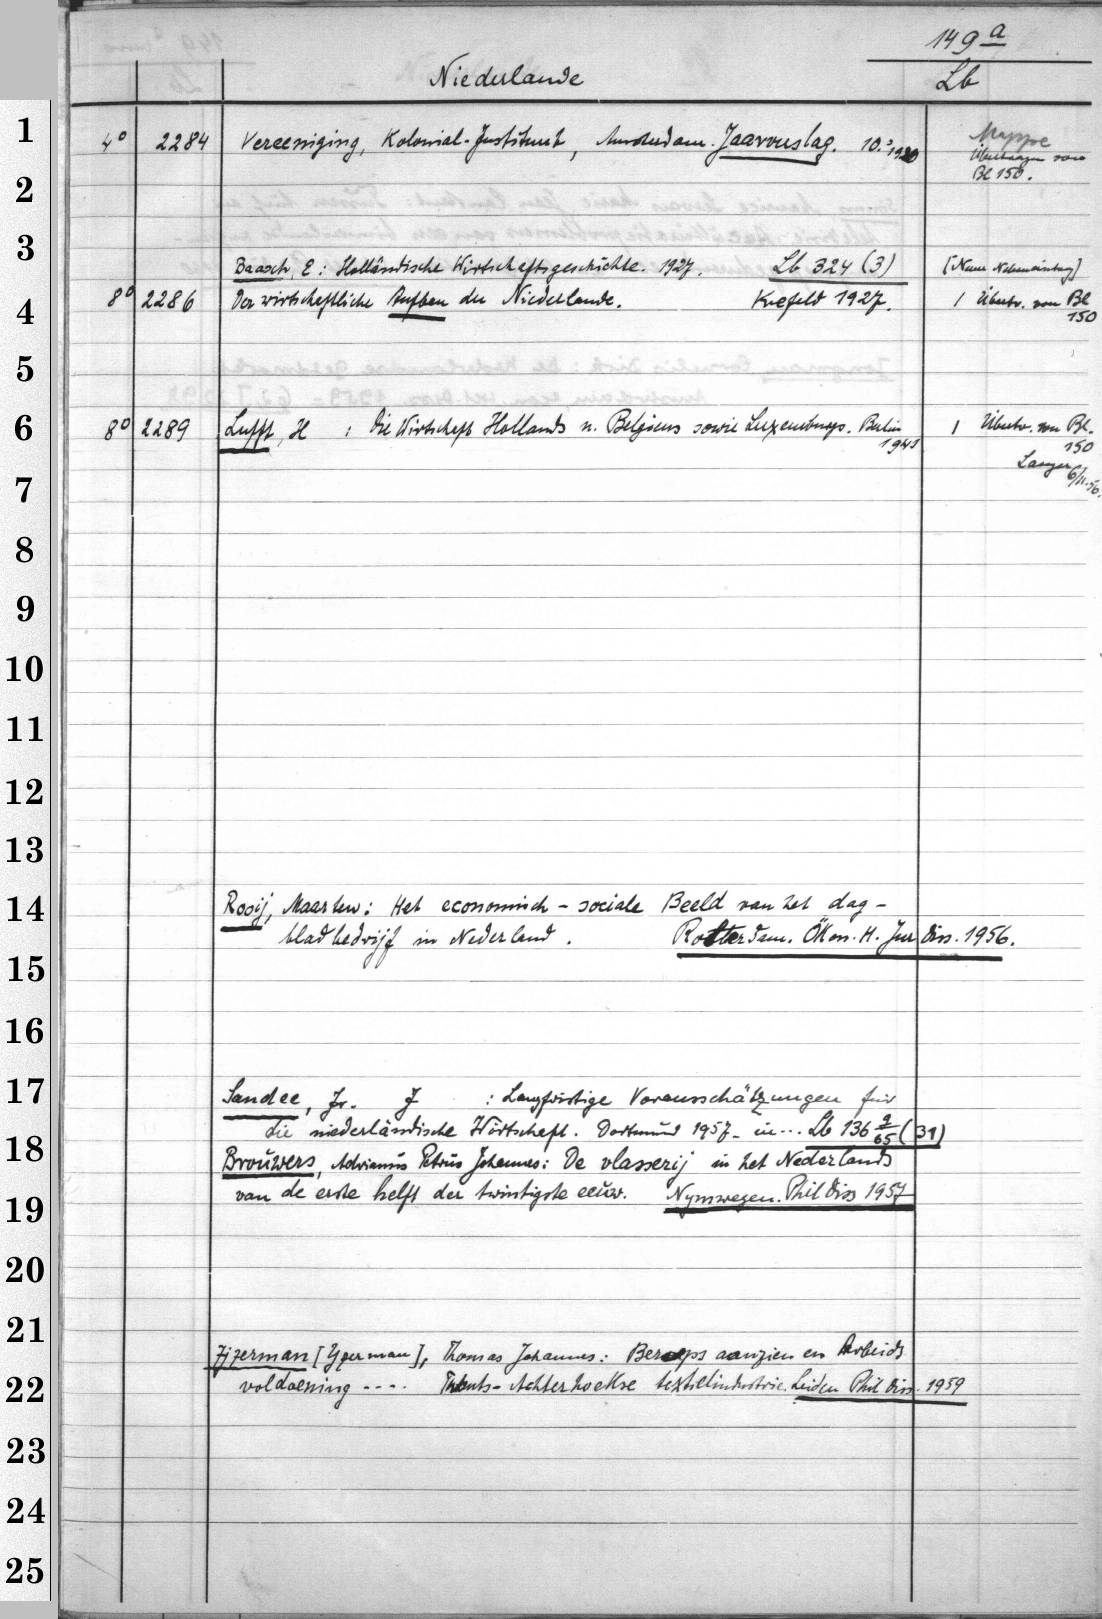 149 a
Niederlande
Lb
1
4° 2284 Vereeniging, Kolonial-Institut, Amsterdam. Jaarverslag. 10. 1920
Mappe
Übertragen vom
Bl 150.
2
3
Baasch, E: Holländische Wirtschaftsgeschichte. 1927. Lb 324 (3) [Neuer Nebeneintrag]
4
8° 2286 Der wirtschaftliche Aufbau der Niederlande. Krefeld 1927. 1 Übertr. von Bl
150
5
6
8° 2289 Lufft, H : Die Wirtschaft Hollands u. Belgiens sowie Luxemburgs. Berlin 1 Übertr. von Bl.
1941 150
6/11.56.
7
8
9
10
11
12
13
14
Rooij, Maarten: Het economisch-sociale Beeld van het dag-
bladbedrijf in Nederland. Rotterdam. Ökon. H. Jur Diss. 1956.
15
16
17
Sandee, Jr. J : Langfristige Vorausschätzungen für
die niederländische Wirtschaft. Dortmund 1957. in... Lb 136 9/65 (31)
18
Brouwers, Adrianus Petrus Johannes: De vlasserij in het Nederlands
van de erste helft der twintigste eeuw. Nymwegen. Phil Diss 1957
19
20
21
Ijzerman [Yzerman], Thomas Johannes: Beroeps aanzien en Arbeids
22
voldoening .... Twents-Achterhoekse textielindustrie. Leiden Phil Diss. 1959
23
24
25